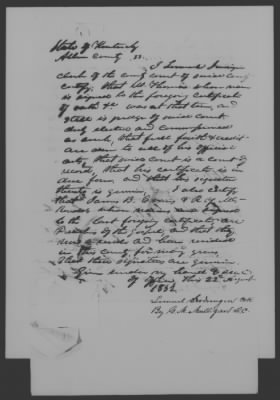 State of Kentucky
Allen County ss.
I Samuel
clerk of the county court of said county
certify, that W. Thomas whose name
is signed to the foregoing certificate
of oath &c was at that time and
still is judge of said court
duly elected and commissioned
as such, that full faith & credit
are due to all of his official
acts, that said court is a court of
record, that his certificate is in
due form, and that his signature
thereto is genuine, I also certify
that James B. &
whose names are signed
to the last foregoing certificate are
of the gospel, and that they
and have resided
in this county for many years,
that their signatures are genuine
Given under my hand & seal
of office this 22d August
1832
Samuel Clk
By M. Mulligan D.C.